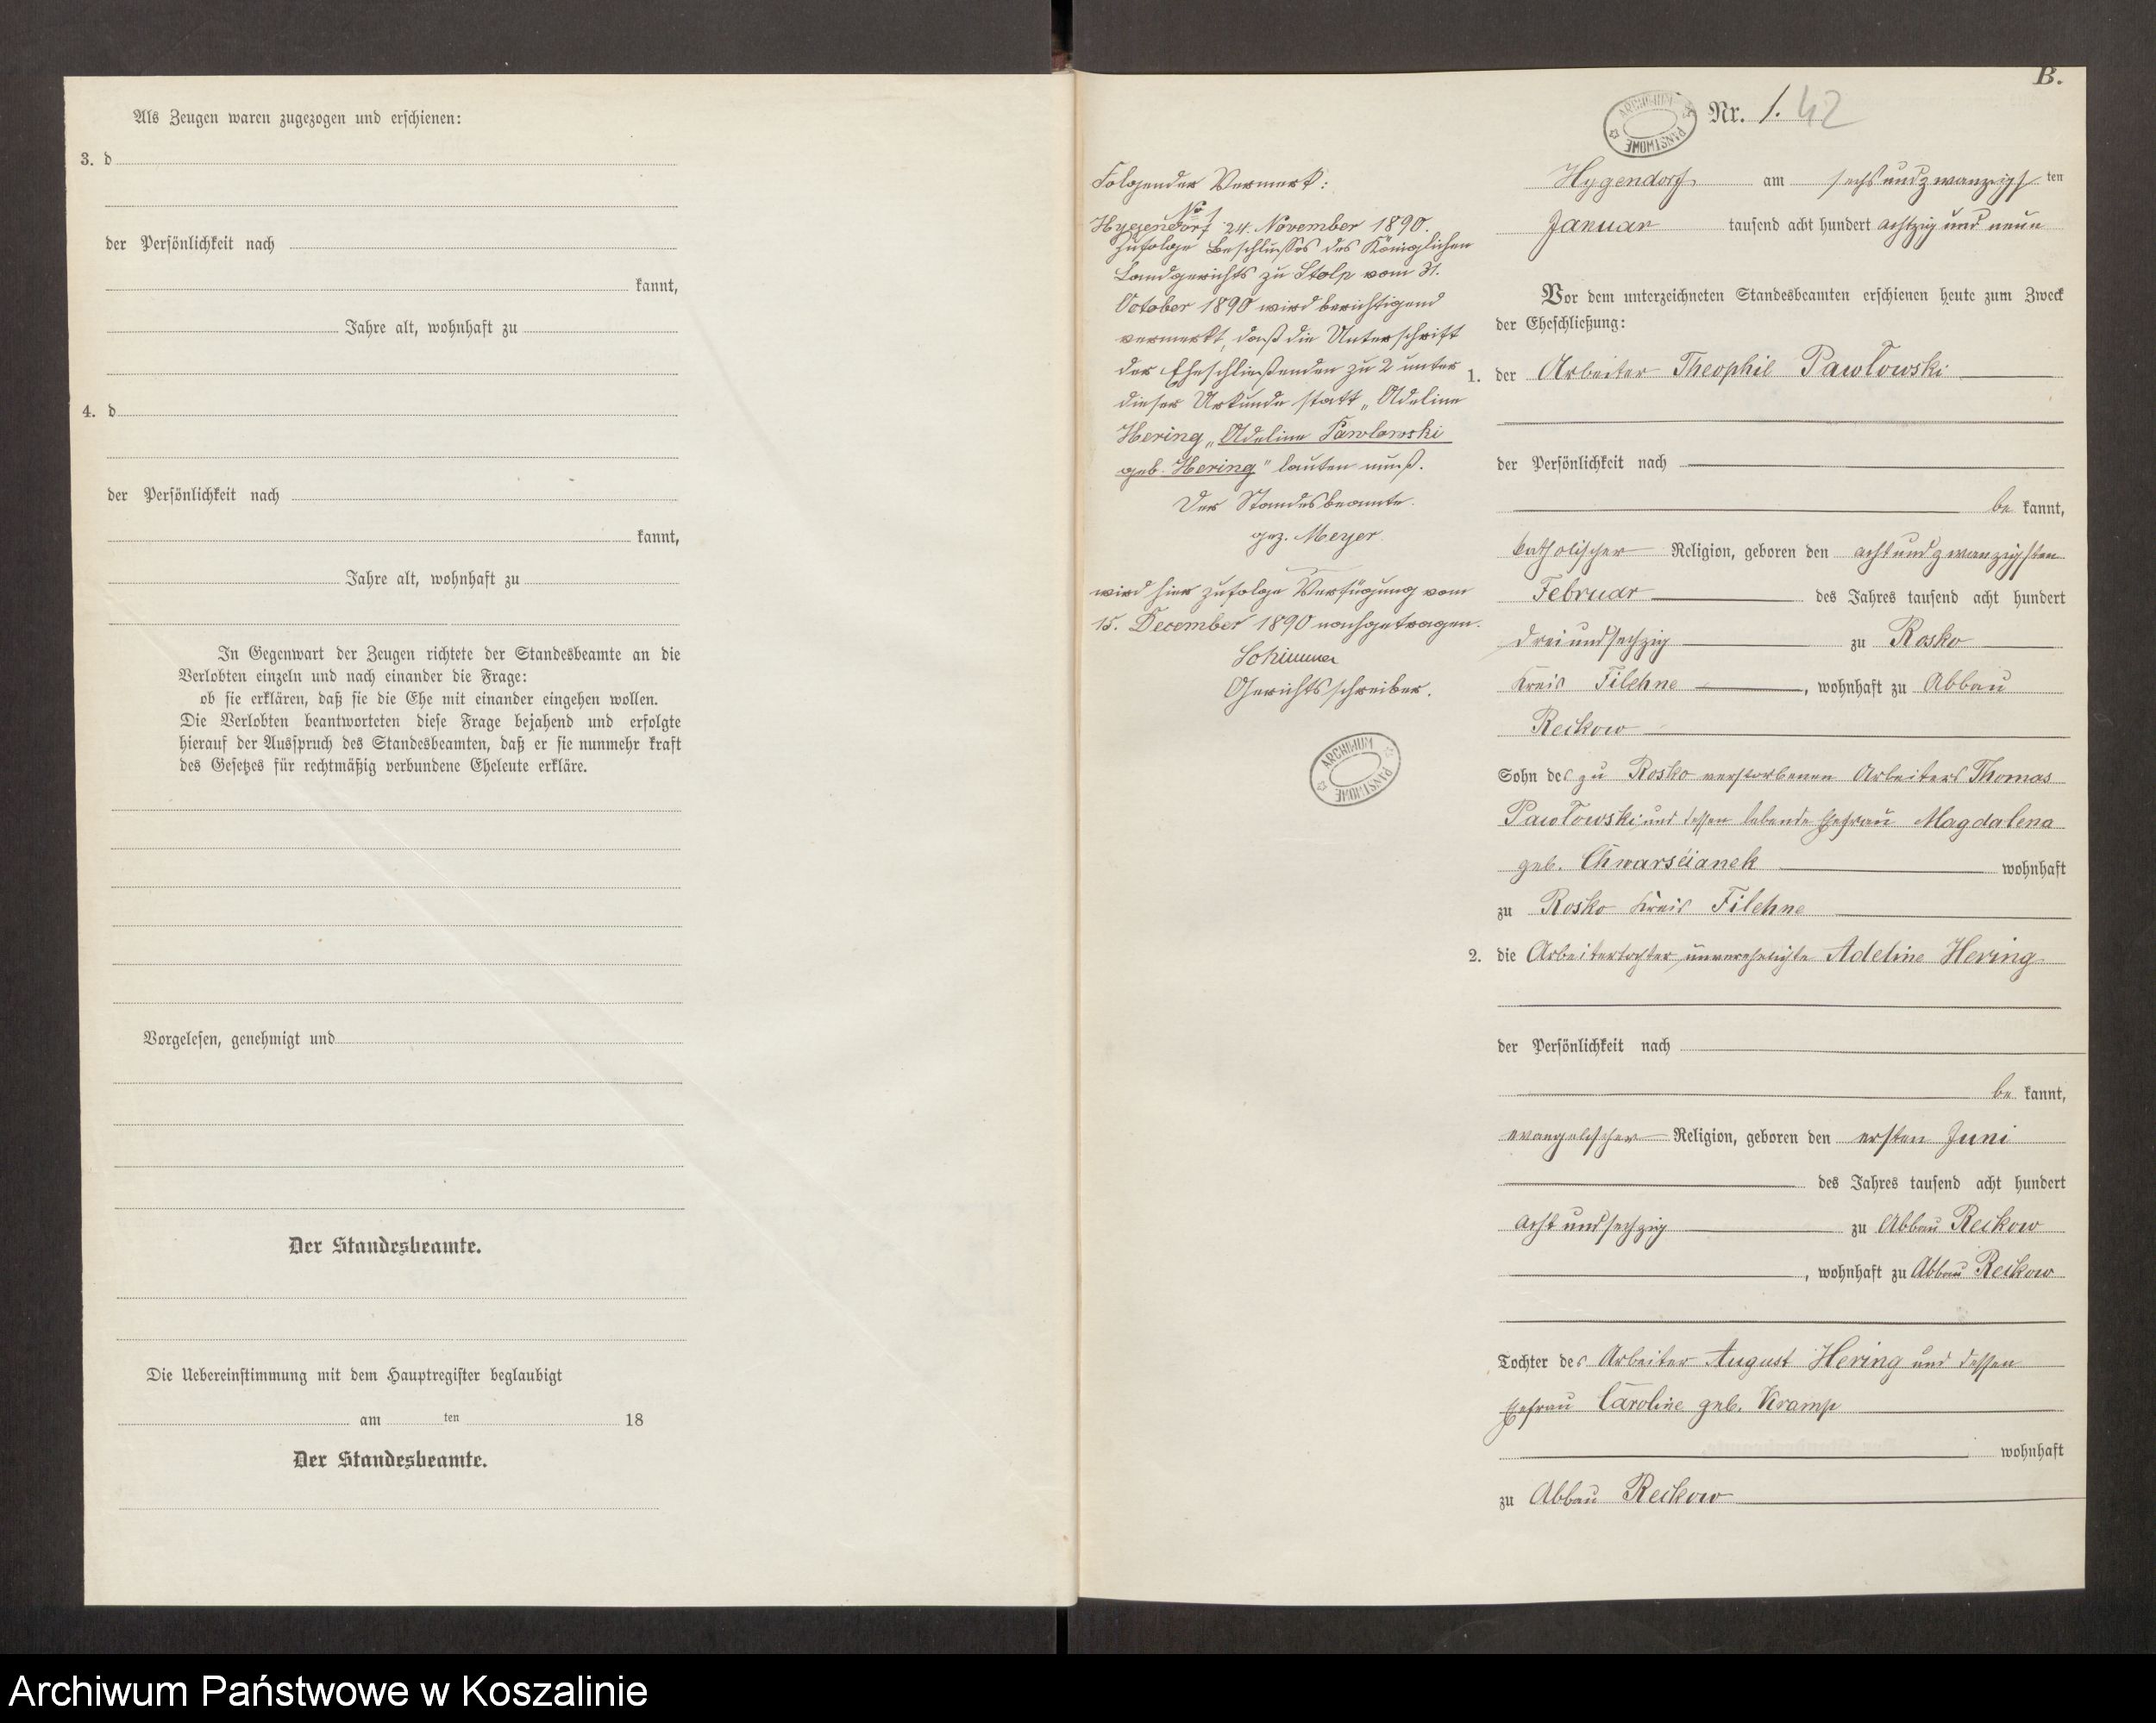 Als Zeugen waren zugezogen und erschienen:
3. d
der Persönlichkeit nach
kannt,
Jahre alt, wohnhaft zu
4. d
der Persönlichkeit nach
kannt,
Jahre alt, wohnhaft zu
In Gegenwart der Zeugen richtete der Standesbeamte an die
Verlobten einzeln und nach einander die Frage:
ob sie erklären, daß sie die Ehe mit einander eingehen wollen.
Die Verlobten beantworteten diese Frage bejahend und erfolgte
hierauf der Ausspruch des Standesbeamten, daß er sie nunmehr kraft
des Gesetzes für rechtmäßig verbundene Eheleute erkläre.
Vorgelesen, genehmigt und
Der Standesbeamte.
Die Uebereinstimmung mit dem Hauptregister beglaubigt
am ten 18
Der Standesbeamte.
B.
ARCHIWUM PAŃSTWOWE
Nr. 1. 42
Folgender Vermerk:
No 1
Hygendorf 24. November 1890.
Zufolge Beschlusses des Königlichen
Landgerichts zu Stolp vom 31.
October 1890 wird berichtigend
vermerkt, daß die Unterschrift
der Eheschließenden zu 2 unter
dieser Urkunde statt „Adeline
Hering „Adeline Pawlowski
geb. Hering" lauten muß.
Der Standesbeamte.
gez. Meyer.
wird hier zufolge Verfügung vom
15. December 1890 nachgetragen.
Gerichtsschreiber.
ARCHIWUM PAŃSTWOWE
Hygendorf am sechsundzwanzigs ten
Januar tausend acht hundert achtzig und neun
Vor dem unterzeichneten Standesbeamten erschienen heute zum Zweck
der Eheschließung:
1. der Arbeiter Theophil Pawłowski
der Persönlichkeit nach
be kannt,
katholischer Religion, geboren den achtundzwanzigsten
Februar des Jahres tausend acht hundert
dreiundsechzig zu Rosko
Kreis Filehne, wohnhaft zu Abbau
Reckow
Sohn des zu Rosko verstorbenen Arbeiters Thomas
Pawłowski und dessen lebende Ehefrau Magdalena
geb. Chwarścianek wohnhaft
zu Rosko Kreis Filehne
2. die Arbeitertochter, unverehelichte Adeline Hering
der Persönlichkeit nach
be kannt,
evangelischer Religion, geboren den ersten Juni
des Jahres tausend acht hundert
acht und sechzig zu Abbau Reckow
, wohnhaft zu Abbau Reckow
Tochter des Arbeiter August Hering und dessen
Ehefrau Caroline geb. Kramp
wohnhaft
zu Abbau Reckow
Archiwum Państwowe w Koszalinie